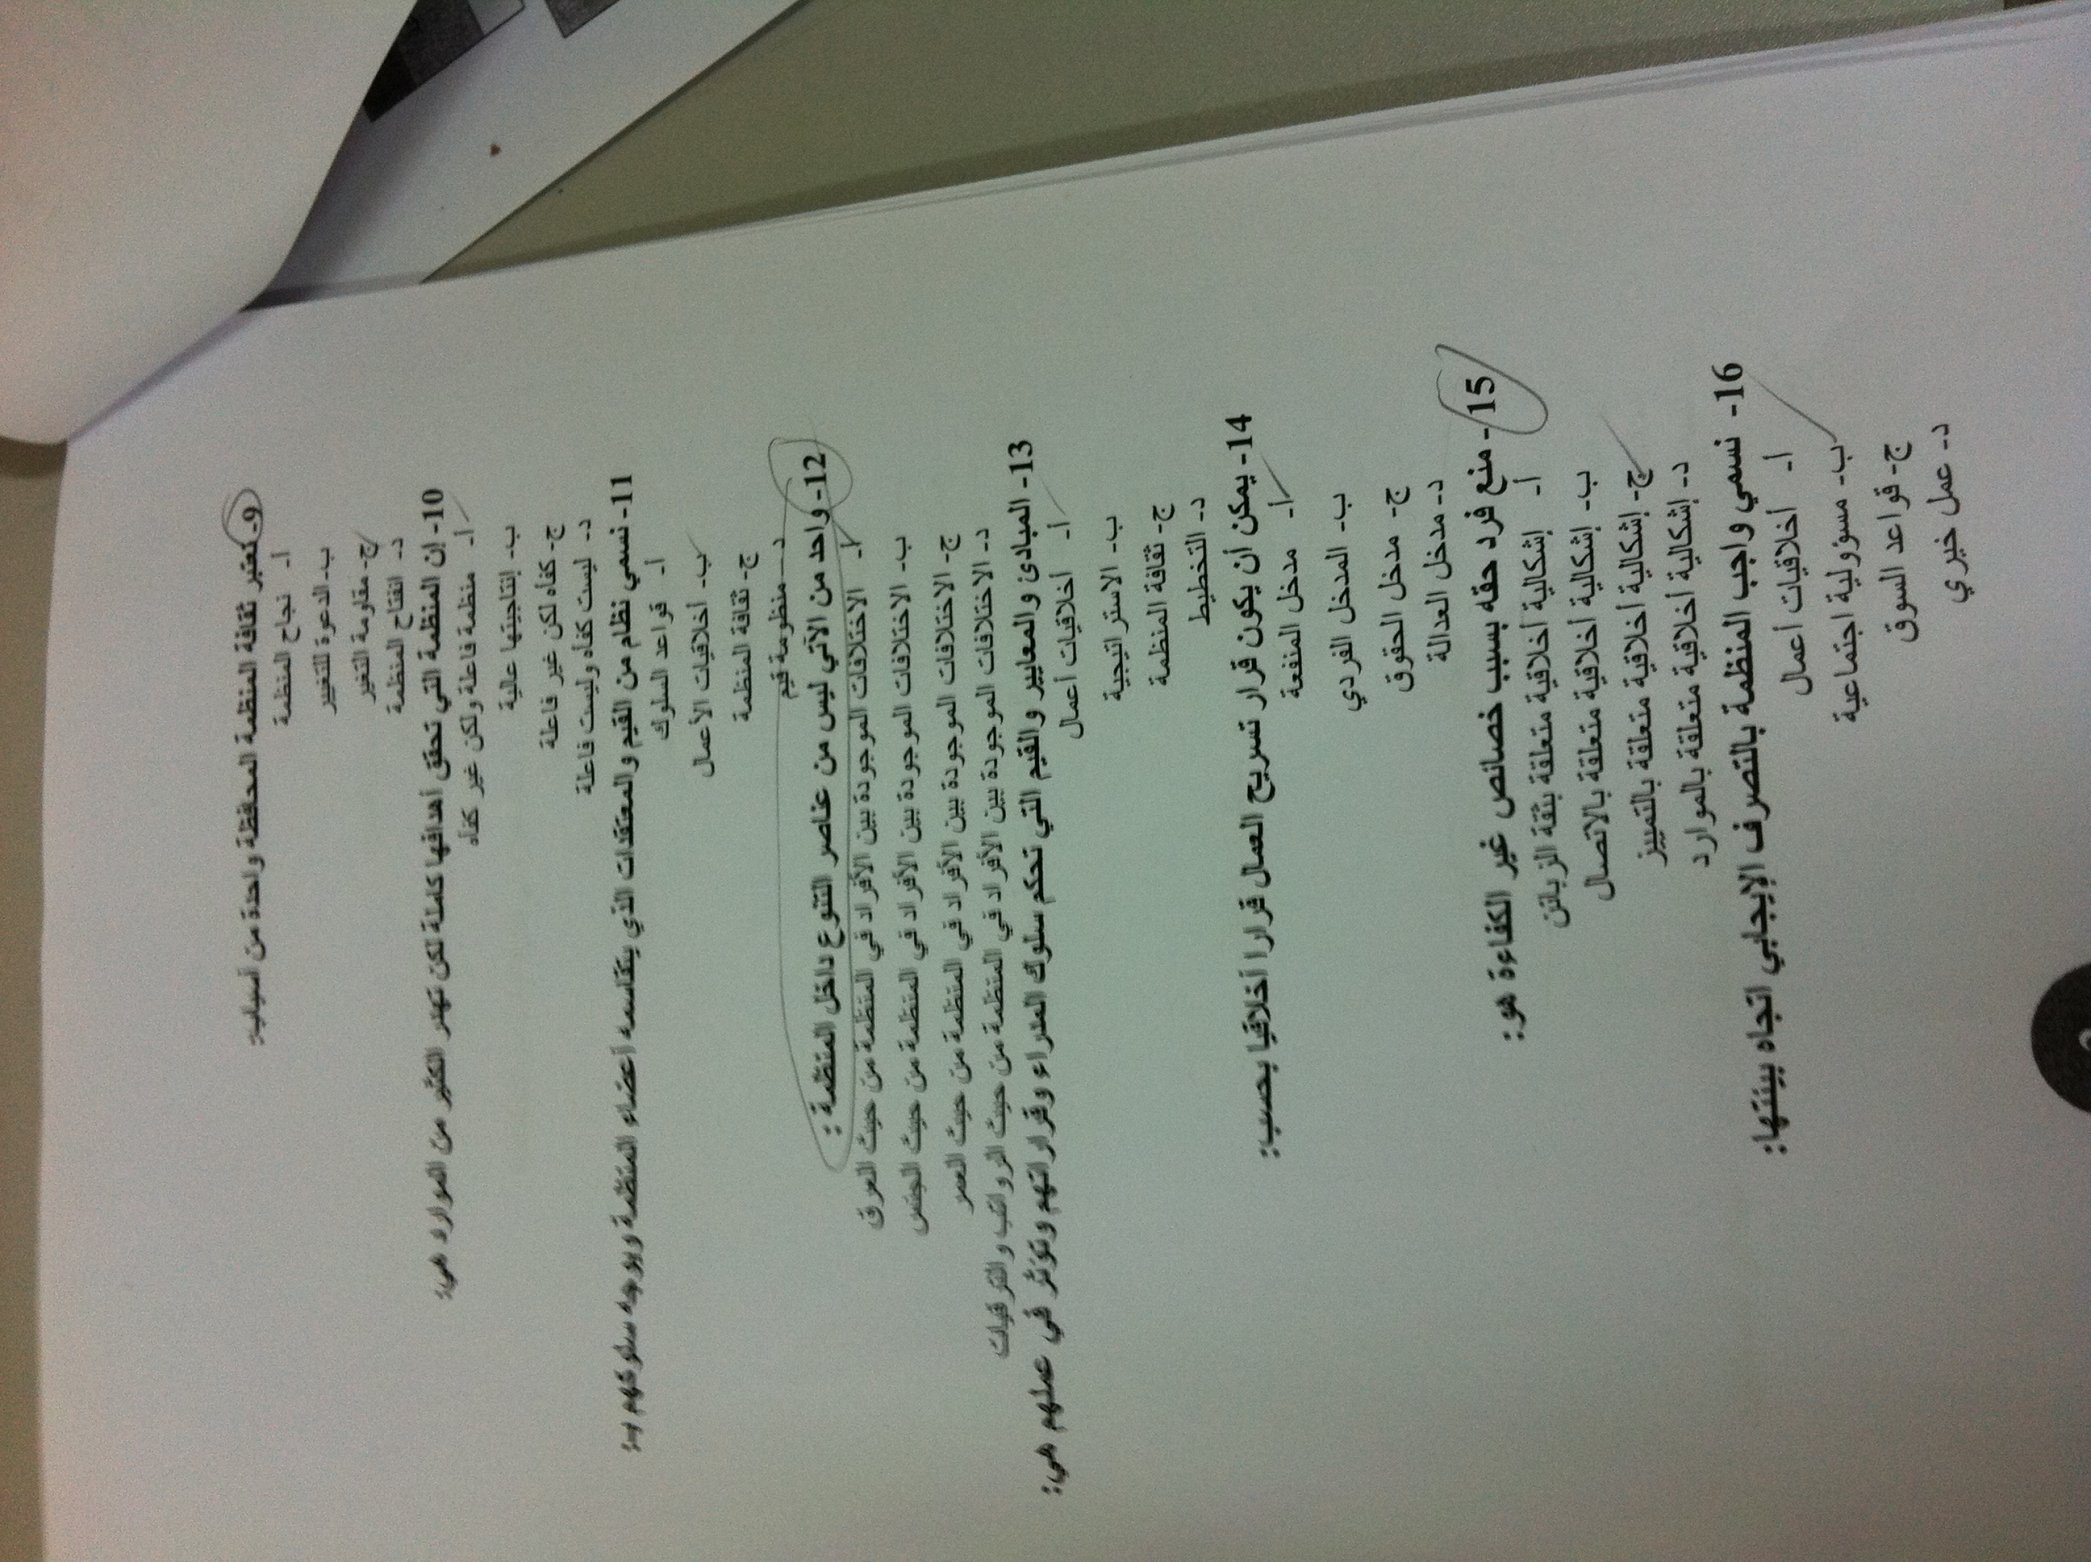 9- تعتبر ثقافة المنظمة المحافظة واحدة من أسباب:
أ- نجاح المنظمة
ب- الدعوة للتغيير
ج- مقاومة التغير
د- انفتاح المنظمة
10- إن المنظمة التي تحقق أهدافها كاملة لكن تهدر الكثير من الموارد هي:
أ- منظمة فاعلة ولكن غير كفأه
ب- إنتاجيتها عالية
ج- كفأه لكن غير فاعلة
د- ليست كفأه وليست فاعلة
11- نسمي نظام من القيم والمعتقدات الذي يتقاسمه أعضاء المنظمة ويوجه سلوكهم بـ:
أ- قواعد السلوك
ب- أخلاقيات الأعمال
ج- ثقافة المنظمة
د- منظومة قيم
12- واحد من الآتي ليس من عناصر التنوع داخل المنظمة:
أ- الاختلافات الموجودة بين الأفراد في المنظمة من حيث العرق
ب- الاختلافات الموجودة بين الأفراد في المنظمة من حيث الجنس
ج- الاختلافات الموجودة بين الأفراد في المنظمة من حيث العمر
د- الاختلافات الموجودة بين الأفراد في المنظمة من حيث الرواتب والترقيات
13- المبادئ والمعايير والقيم التي تحكم سلوك المدراء وقراراتهم وتؤثر في عملهم هي:
أ- أخلاقيات أعمال
ب- الاستراتيجية
ج- ثقافة المنظمة
د- التخطيط
14- يمكن أن يكون قرار تسريح العمال قرارا أخلاقيا بحسب:
أ- مدخل المنفعة
ب- المدخل الفردي
ج- مدخل الحقوق
د- مدخل العدالة
15- منع فرد حقه بسبب خصائص غير الكفاءة هو:
أ- إشكالية أخلاقية متعلقة بثقة الزبائن
ب- إشكالية أخلاقية متعلقة بالاتصال
ج- إشكالية أخلاقية متعلقة بالتمييز
د- إشكالية أخلاقية متعلقة بالموارد
16- نسمي واجب المنظمة بالتصرف الإيجابي اتجاه بيئتها:
أ- أخلاقيات أعمال
ب- مسؤولية اجتماعية
ج- قواعد السوق
د- عمل خيري